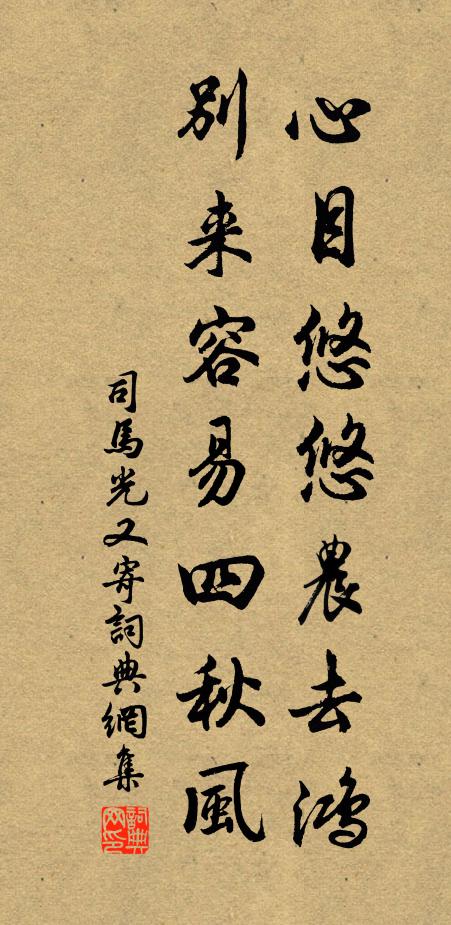 心目悠悠農去鴻
別来容易四秋風
司馬光又寄詞典網集
詞典网印